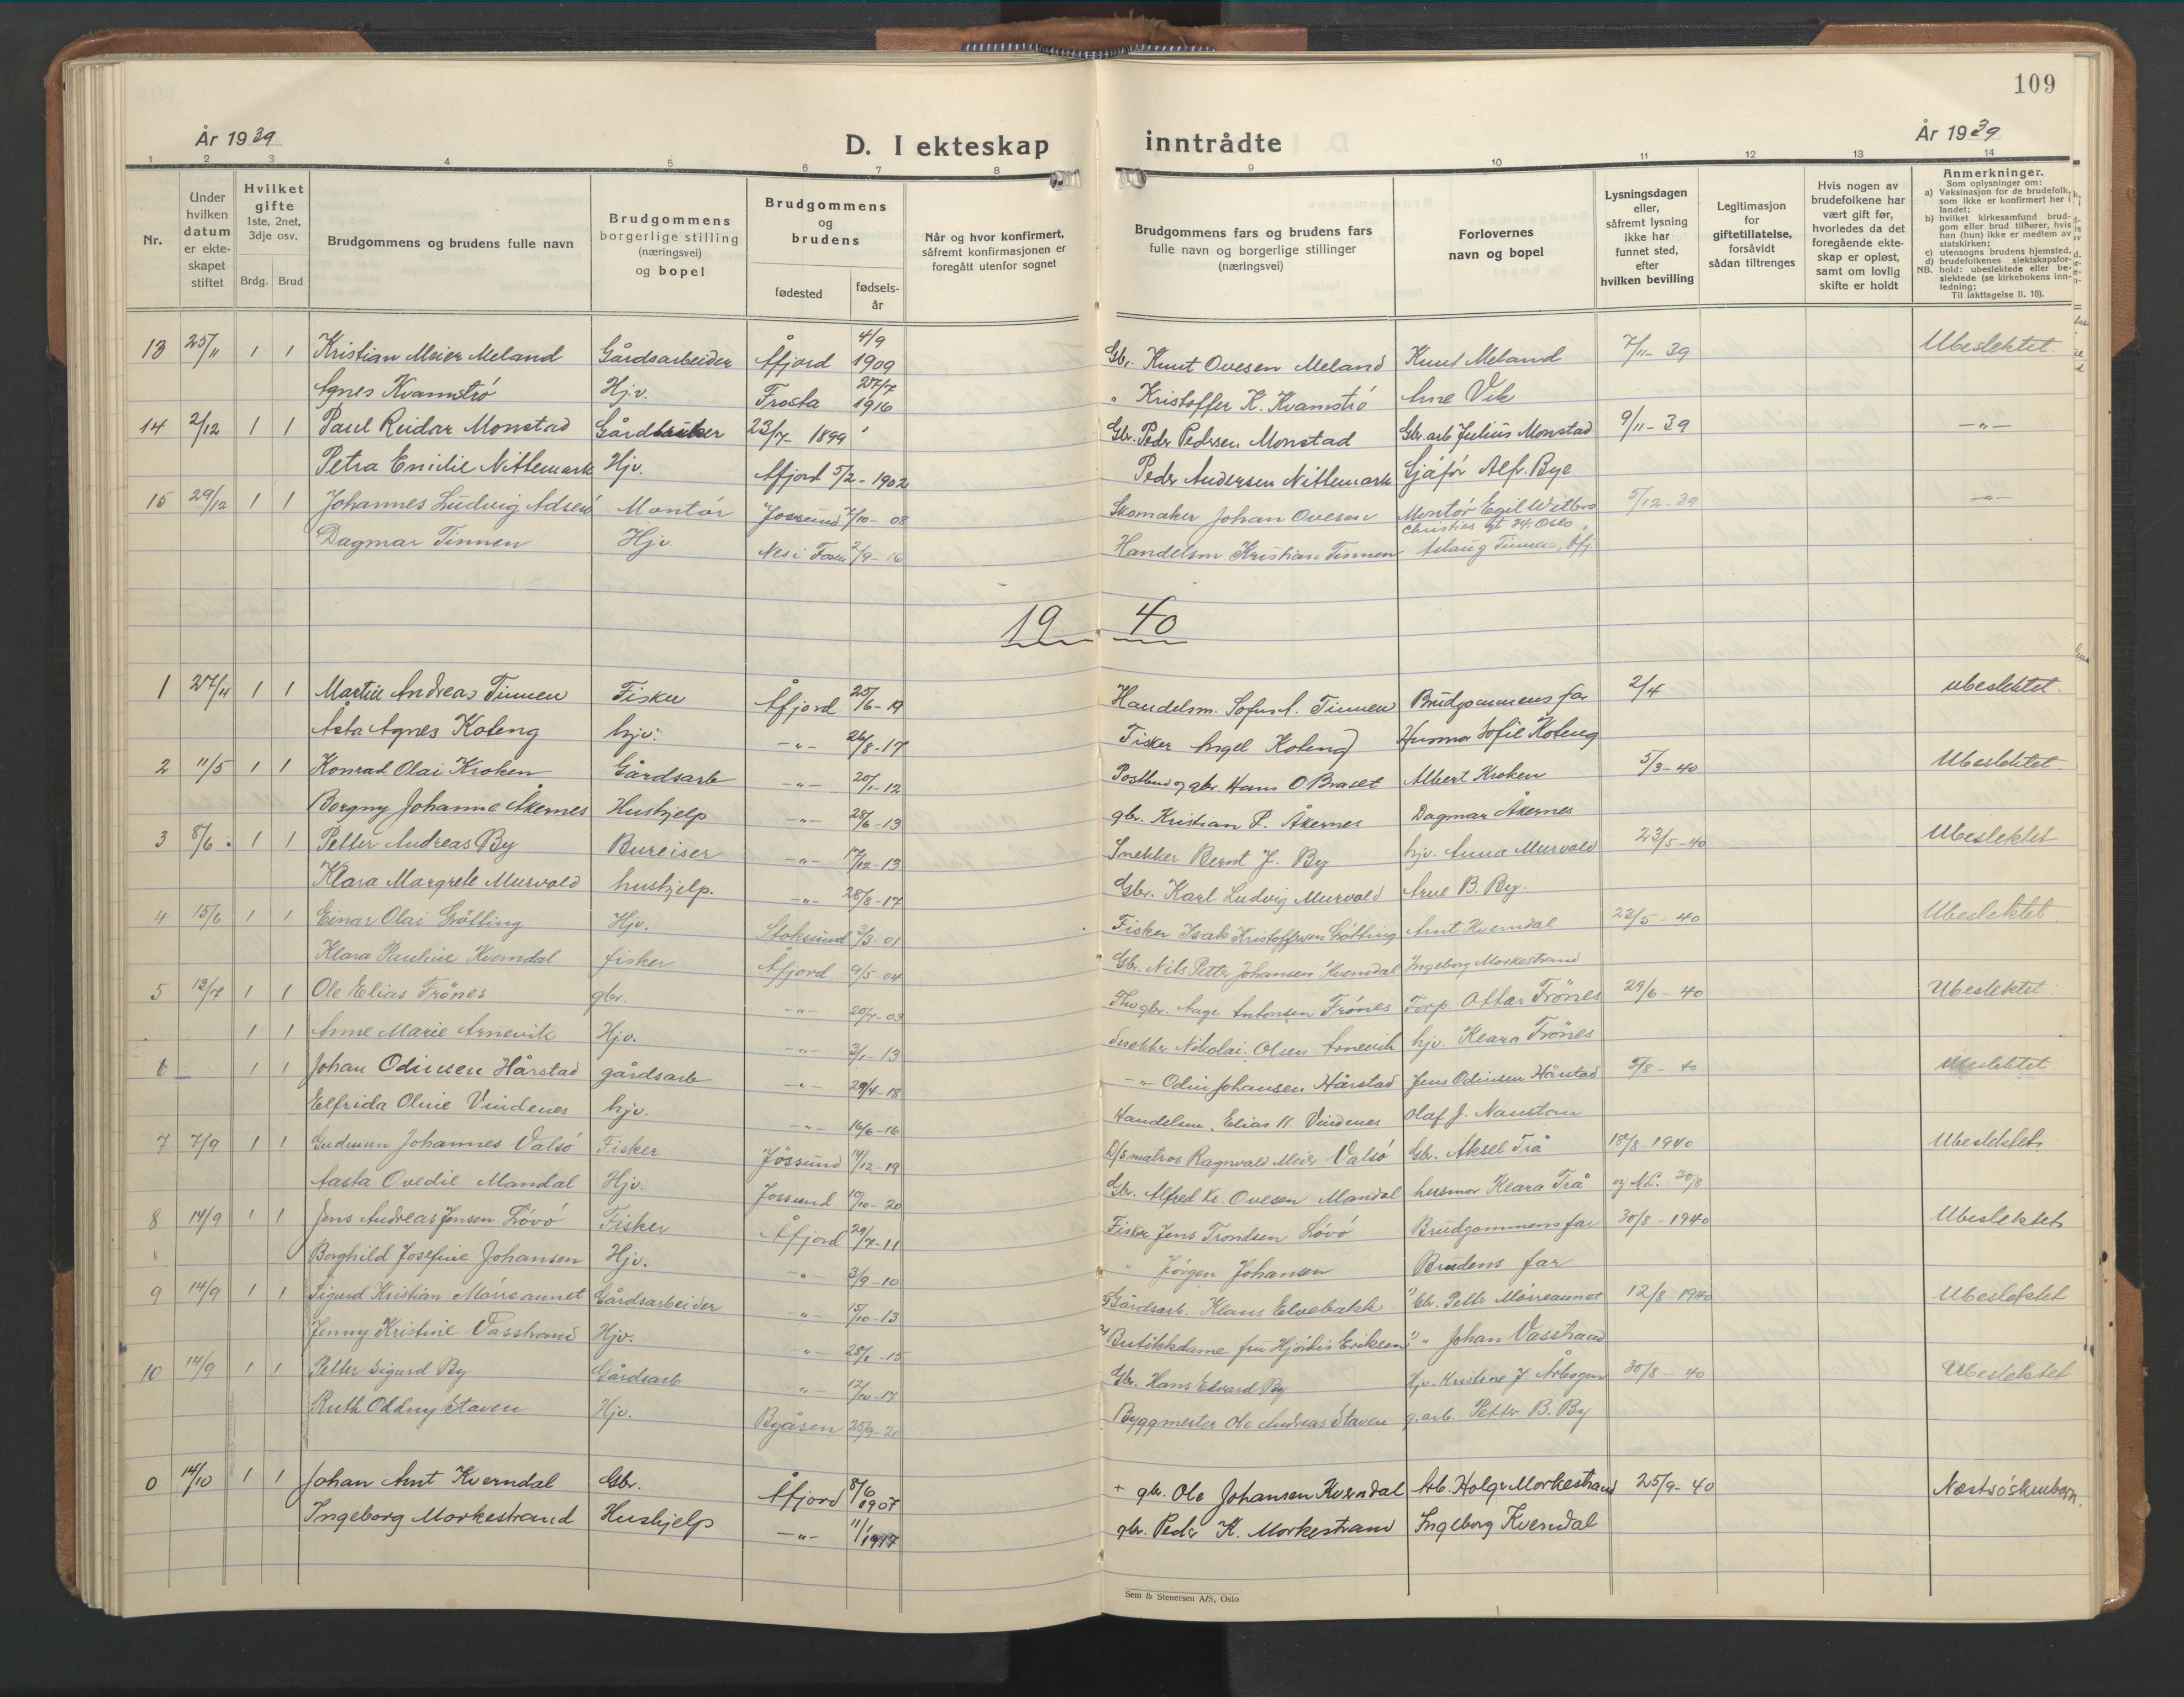 109
År 1939
D. I ekteskap inntrådte
År 1939
1 2 3 4 5 6 7 8 9 10 11 12 13 14
Nr.
Under hvilken datum er ekteskapet stiftet
Hvilket gifte 1ste, 2net, 3dje osv.
Brdg. Brud
Brudgommens og brudens fulle navn
Brudgommens borgerlige stilling (næringsvei) og bopel
Brudgommens og brudens
fødested
fødselsår
Når og hvor konfirmert, såfremt konfirmasjonen er foregått utenfor sognet
Brudgommens fars og brudens fars fulle navn og borgerlige stillinger (næringsvei)
Forlovernes navn og bopel
Lysningsdagen eller, såfremt lysning ikke har funnet sted, efter hvilken bevilling
Legitimasjon for giftetillatelse, forsåvidt sådan tiltrenges
Hvis nogen av brudefolkene har vært gift før, hvorledes da det foregående ekteskap er opløst, samt om lovlig skifte er holdt
Anmerkninger.
Som oplysninger om:
a) Vaksinasjon for de brudefolk, som ikke er konfirmert her i landet;
b) hvilket kirkesamfund brudgom eller brud tilhører, hvis han (hun) ikke er medlem av statskirken;
c) utensogns brudens hjemsted.
d) brudefolkenes slektskapsforhold: ubeslektede eller beslektede (se kirkebokens innledning;
NB.
Til iakttagelse II. 10).
13 25/11 1 1 Kristian Meier Meland Gårdsarbeider Åfjord 4/9 1909 Gbr. Knut Ovesen Meland Knut Meland 7/11-39 Ubeslektet.
Agnes Kvamströ Hjv. Frosta 27/7 1916 " Kristoffer K. Kvamströ Arne Vik
14 2/12 1 1 Paul Reidar Monstad Gårdbruker 23/7- 1899 Gbr. Peder Pedersen Monstad Gbr.arb Julius Monstad 9/11-39 -"-
Petra Emilie Nittemark Hjv. Åfjord 5/2-1902 Peder Andersen Nittemark Sjåför Alf. Bye
15 29/12 1 1 Johannes Ludvig Adserö Montör Jossund 7/10-08 Skomaker Johan Ovesen Montör Egil Wilbro 5/12-39 -"-
Christies gt 34. Oslo
Dagmar Tinnen Hjv Nes i Fosen 2/9-16 Handelsm Kristian Tinnen Aslaug Tinnen, Åfj.
19 40
1 27/4 1 1 Martin Andreas Tinnen Fisker Åfjord 25/6-19 Handelsm. Sofus A. Tinnen Brudgommens far 2/4 ubeslektet.
Asta Agnes Koteng hjv. -"- 26/8-17 Fisker Angel Koteng Husmor Sofie Koteng
2 11/5 1 1 Konrad Olai Kroken Gårdsarb -"- 20/1-12 Postbud og gbr. Hans O Braset Albert Kroken 5/3-40 Ubeslektet.
Borgny Johanne Åkernes Hushjelp -"- 28/6-13 gbr. Kristian P. Åkernes Dagmar Åkernes
3 8/6 1 1 Petter Andreas By Bureiser -"- 17/10-13 Snekker Bernt J. By hjv. Anna Murvold 23/5-40 Ubeslektet
Klara Margrete Murvold hushjelp. -"- 28/8-17 Gbr. Karl Ludvig Murvold Arne B. By.
4 15/6 1 1 Einar Olai Götting Hjv. Stoksund 3/3-01 Fisker Isak Kristoffersen Götting Arnt Kverndal 23/5-40 Ubeslektet.
Klara Pauline Kverndal fisker Åfjord 9/5-04 Gbr. Nils Petter Johansen Kverndal Ingeborg Morkestrand
5 13/7 1 1 Ole Elias Frönes gbr. -"- 20/7-03 gbr. Aage Antonsen Frönes Forp. Ottar Frönes 29/6-40 Ubeslektet.
1 1 Anne Marie Arnevik Hjv. -"- 3/1-13 Snekker Nikolai Olsen Arnevik hjv. Klara Frönes
6 1 1 Johan Odinsen Hårstad gårdsarb -"- 29/4-18 -"- Odin Johansen Hårstad Jens Odinsen Hårstad 5/8-40 Ubeslektet.
Elfrida Oline Vindenes hjv. -"- 16/6-16 Handelsm. Elias N. Vindenes Olaf J. Naustan
7 7/9 1 1 Gudmun Johannes Valsö Fisker Jössund 4/12-19 D/S matros Ragnvald Meier Valsö Gbr. Aksel Trå 18/8 1940 Ubeslektet.
Aasta Ovedie Mandal Hjv. Jossund 10/10-20 Gbr. Alfred Kr. Ovesen Mandal husmor Klara Trå og N.L. 30/8
8 14/9 1 1 Jens Andreas Jensen Lövö Fisker Åfjord 29/7-11 Fisker Jens Trondsen Lövö Brudgommens far 30/8-1940 Ubeslektet
Borghild Josefine Johansen Hjv. -"- 3/9-10 " Jörgen Johansen Brudens far
9 14/9 1 1 Sigurd Kristian Mörreaunet Gårdsarbeider -"- 15/10-13 Gårdsarb. Klaus Elvebakk Gbr. Petter Mörreaunet 12/8-1940 Ubeslektet
Jenny Kristine Vasstrand Hjv. -"- 28/1-15 Butikkdame fru Hjördis Eriksen " Johan Vasstrand
10 14/9 1 1 Petter Sigurd By Gårdsarb " 12/10-17 Gbr. Hans Edvard By Hjv. Kristine J. Årbogen 30/8-40 Ubeslektet
Ruth Oddny Staven Hjv. Byåsen 25/9-20 Byggmester Ole Andreas Staven g.arb. Petter B. By
0 14/10 1 1 Johan Arnt Kverndal Gbr. Åfjord 8/6 1907 + gbr. Ole Johansen Kverndal Arb. Holger Morkestrand 25/9-40 Næstsöskenbarn.
Ingeborg Morkestrand Hushjelp -"- 11/1 1917 gbr. Peder K. Morkestrand Ingeborg Kverndal
Sem & Stenersen A/S, Oslo